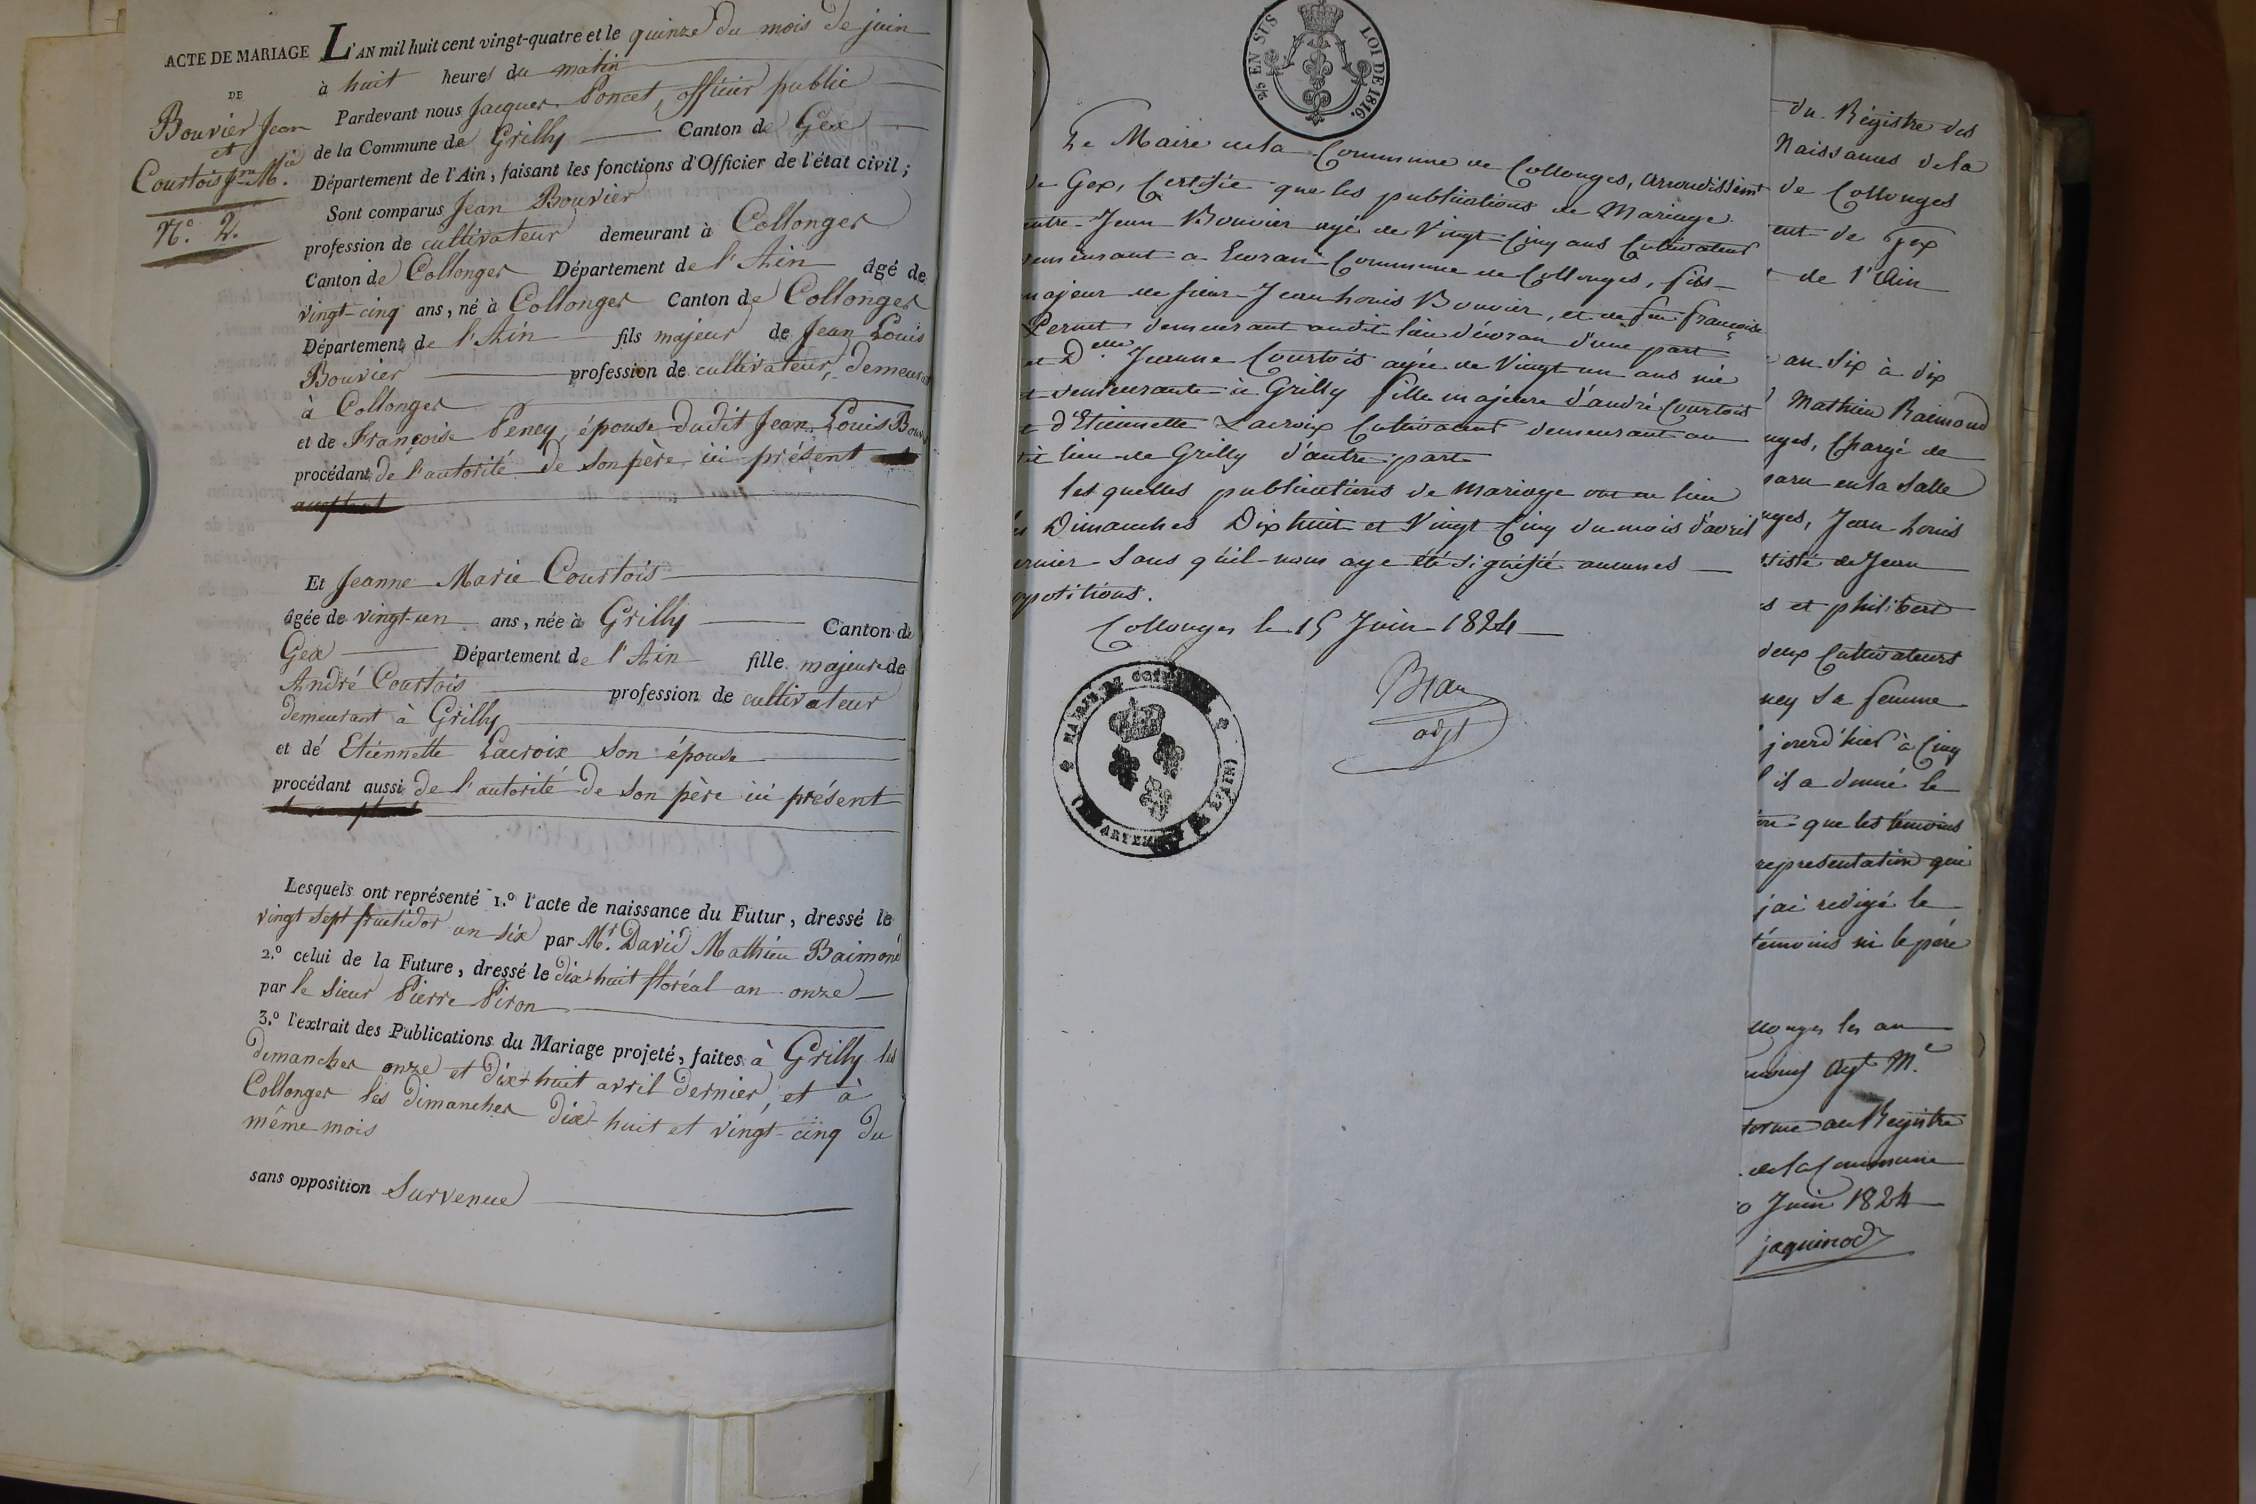 ACTE DE MARIAGE
DE
Bouvier Jean
et
Courtois Jne Mie
N.° 2.
L'AN mil huit cent vingt-quatre et le quinze du mois de juin
à huit heures du matin
Pardevant nous Jacques Poncet, officier public
de la Commune de Grilly Canton de Gex
Département de l'Ain, faisant les fonctions d'Officier de l'état civil;
Sont comparus Jean Bouvier
profession de cultivateur demeurant à Collonges
Canton de Collonges Département de l'Ain âgé de
vingt-cinq ans, né à Collonges Canton de Collonges
Département de l'Ain fils majeur de Jean Louis
Bouvier profession de cultivateur, demeurant
à Collonges
et de Françoise Peney, épouse dudit Jean Louis Bouv
procédant de l'autorité de son père ici présent
Et Jeanne Marie Courtois
âgée de vingt-un ans, née à Grilly Canton de
Gex Département de l'Ain fille majeure de
André Courtois profession de cultivateur
demeurant à Grilly
et dé Etiennette Lacroix son épouse
procédant aussi de l'autorité de son père ici présent
Lesquels ont représenté 1.° l'acte de naissance du Futur, dressé le
vingt sept fructidor an six par Mr. David Mathieu Baimond
2.° celui de la Future, dressé le dix-huit floréal an onze
par le sieur Pierre Piron
3.° l'extrait des Publications du Mariage projeté, faites à Grilly les
dimanches onze et dix-huit avril dernier, et à
Collonges les dimanches dix-huit et vingt-cinq du
même mois
sans opposition survenue
2/5 EN SUS LOI DE 1816.
Le Maire de la Commune de Collonges, arrondissemt
de Gex, Certifie que les publications de Mariage
entre Jean Bouvier agé de Vingt-Cinq ans Cultivateur
demeurant a Ecoran Commune de Collonges, fils
majeur de sieur Jean Louis Bouvier, et de feu françoise
Pernet demeurant audit lieu d'écoran d'une part
et Delle Jeanne Courtois agée de Vingt un ans née
et demeurante à Grilly fille majeure d'andré Courtois
et d'Etiennette Lacroix Cultivateurs demeurant au
dit lieu de Grilly d'autre part
les quelles publications de mariage ont eu lieu
les Dimanches Dix huit et Vingt Cinq du mois d'avril
dernier Sans qu'il nous aye été Signifié aucunes
opotitions.
Collonges le 15 Juin 1824
adjt
MAIRIE DE COLLONGES (DÉPARTEMENT DE L'AIN)
du Régistre des
Naissances de la
de Collonges
ent de Gex
t de l'Ain
an Six à dix
Mathieu Raimond
nges, Chargé de
paru en la Salle
nges, Jean Louis
ssisté de Jean
s et philibert
deux Cultivateurs
ney Sa femme
jourd'hier à Cinq
il a donné le
on que les temoins
representation que
j'ai redigé le
témoins ni le pére
llonges les an
Agt M.e
forme au Registre
de la Commune
Juin 1824
jaquinod